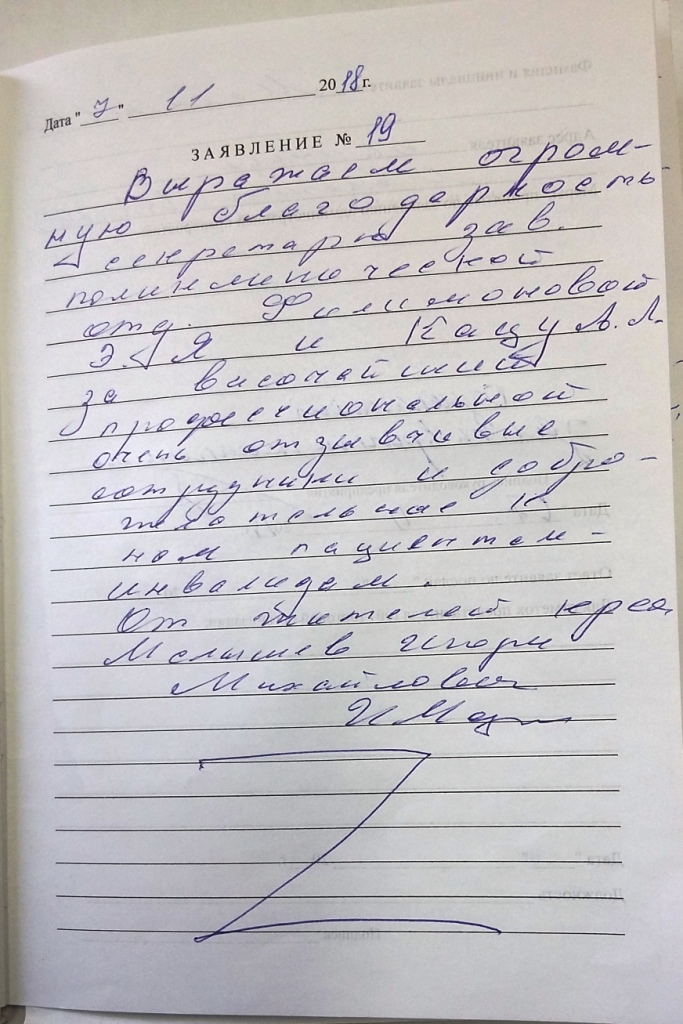 Дата "7" 11 2018 г.
ЗАЯВЛЕНИЕ № 19
Выражаем огром-
ную благодарность
секретарю зав.
поликлинической
отд. Филимоновой
Э. Я и Кацу А. Л.
за высочайший
профессиональной
очень отзывчивые
сотрудники и добро-
желательное к
нам пациентам-
инвалидам.
От жителей
Игорь
Михайлович